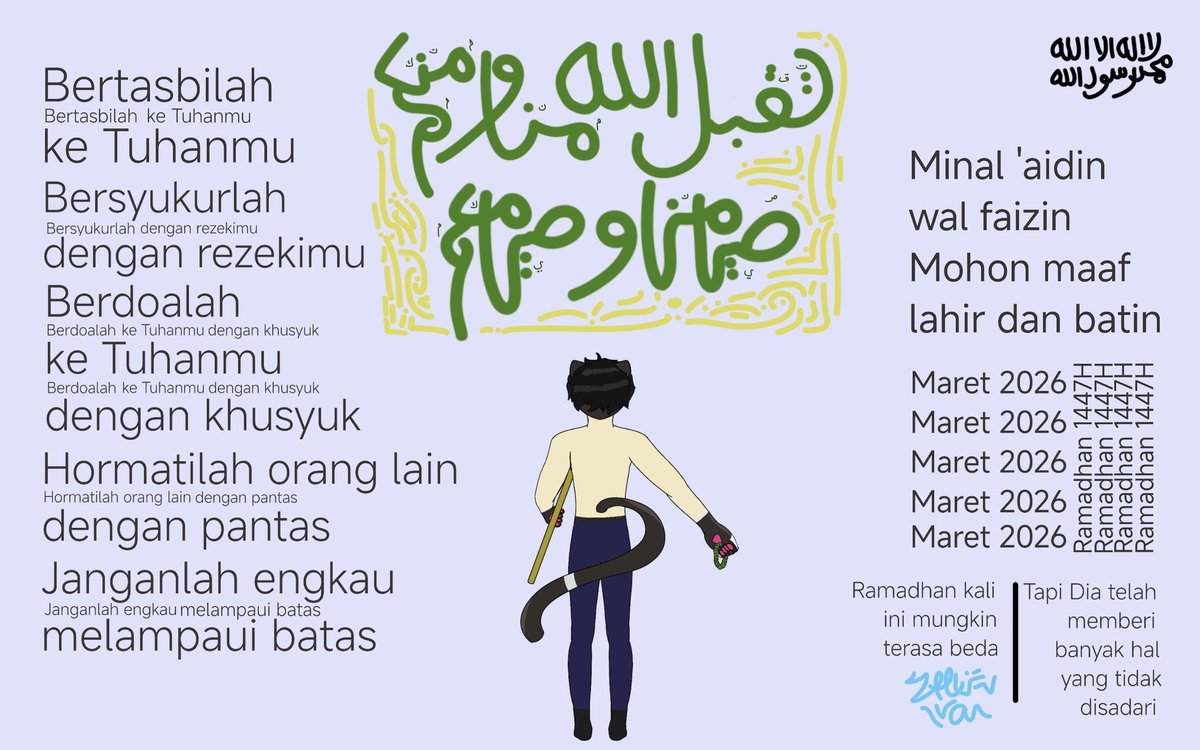 Bertasbilah
Bertasbilah ke Tuhanmu
ke Tuhanmu
Bersyukurlah
Bersyukurlah dengan rezekimu
dengan rezekimu
Berdoalah
Berdoalah ke Tuhanmu dengan khusyuk
ke Tuhanmu
Berdoalah ke Tuhanmu dengan khusyuk
dengan khusyuk
Hormatilah orang lain
Hormatilah orang lain dengan pantas
dengan pantas
Janganlah engkau
Janganlah engkau melampaui batas
melampaui batas
تقبل الله منا ومنكم
صيامنا وصيامكم
لا اله الا الله
محمد رسول الله
Minal 'aidin
wal faizin
Mohon maaf
lahir dan batin
Maret 2026
Maret 2026
Maret 2026
Maret 2026
Maret 2026
Ramadhan 1447H
Ramadhan 1447H
Ramadhan 1447H
Ramadhan 1447H
Ramadhan kali
ini mungkin
terasa beda
Tapi Dia telah
memberi
banyak hal
yang tidak
disadari